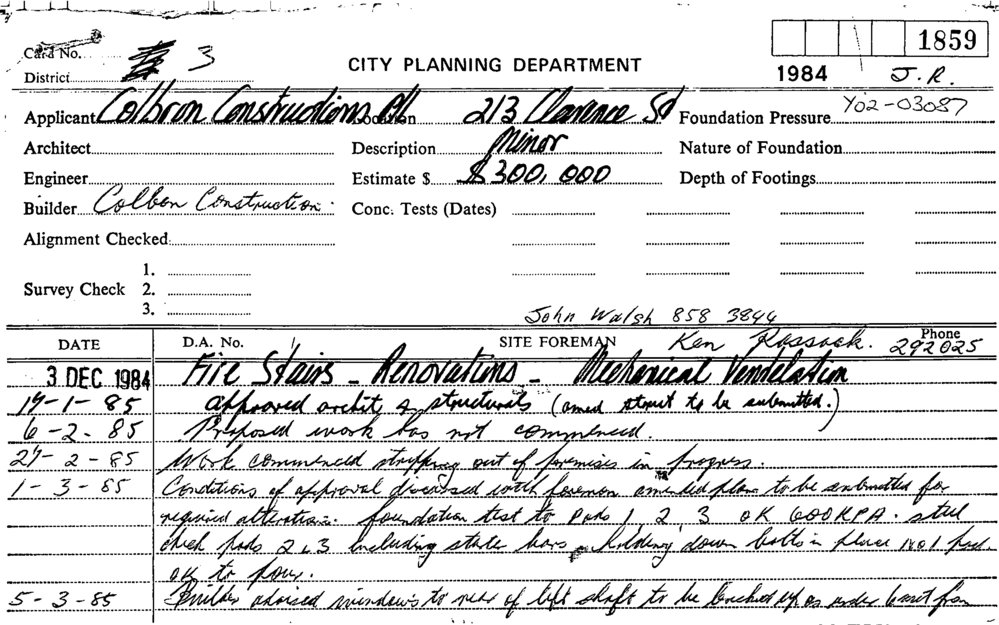 Card No.
District 3
CITY PLANNING DEPARTMENT
1859
1984 J.R.
Applicant Colbron Constructions P/L Location 213 Clarence St Foundation Pressure Y02-03087
Architect Description Minor Nature of Foundation
Engineer Estimate $ $300,000 Depth of Footings
Builder Colben Construction. Conc. Tests (Dates)
Alignment Checked
1.
Survey Check 2.
3.
John Walsh 858 3844
DATE D.A. No. SITE FOREMAN Ken Rossock. Phone 292025
3 DEC 1984 Fire Stairs - Renovations - Mechanical Ventelation
14-1-85 approved archit & structurals (amed struct to be submitted.)
6-2-85 Proposed work has not commenced.
27-2-85 Work commenced stripping out of premises in progress.
1-3-85 Conditions of approval discussed with foreman amended plans to be submitted for
required alterations. foundation test to pads 1, 2, 3 OK 600KPA. steel
check pads 2 & 3 including starter bars holding down bolts in place No 1 pad.
ok to pour.
5-3-85 Builder advised windows to rear of lift shaft to be bricked up as under